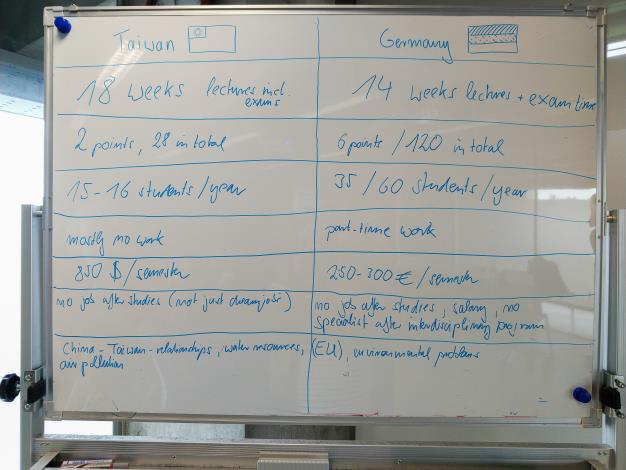 Taiwan
Germany
18 weeks lectures incl. exams
14 weeks lectures + exam time
2 points, 28 in total
6 points / 120 in total
15-16 students / year
35 / 60 students / year
mostly no work
part-time work
850 $ / semester
250-300 € / semester
no job after studies (not just dreamjobs)
no job after studies, salary, no
specialist after interdisciplinary program
China - Taiwan - relationships, water resources, (EU), environmental problems
air pollution